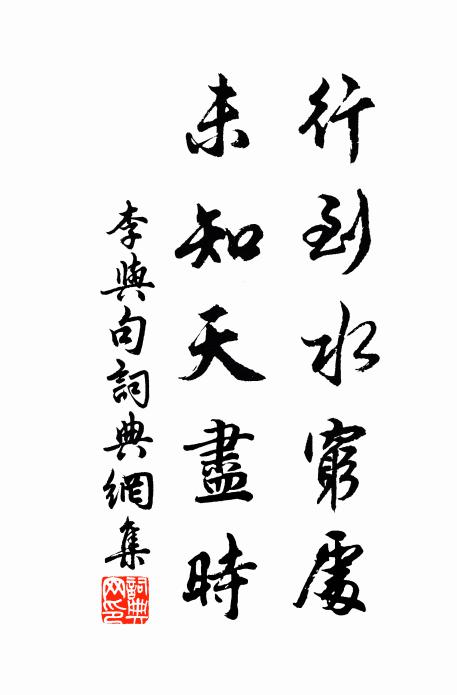 行到水窮處
未知天盡時
李㒜句詞典網集
詞典
网印